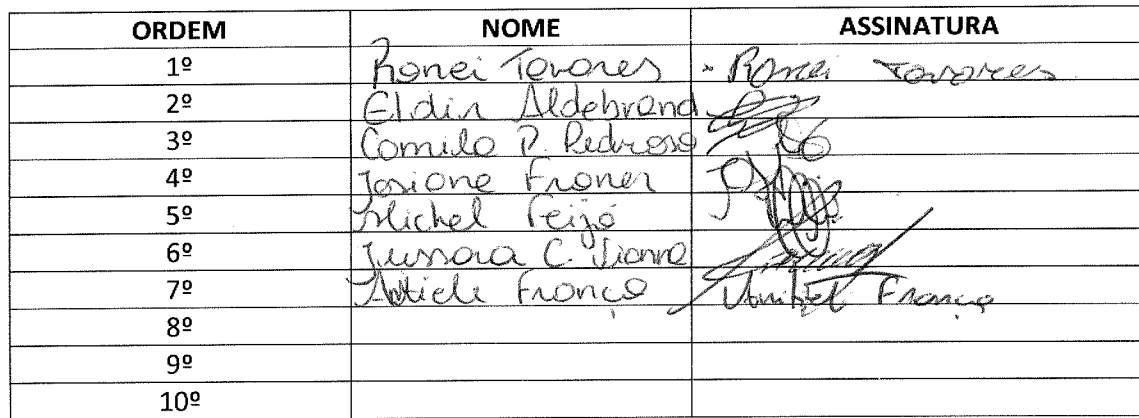 ORDEM NOME ASSINATURA
1º Ronei Tavares Ronei Tavares
2º Eldin Aldebrand
3º Camila P. Pedroso
4º Josiane Froner
5º Michel Feijó
6º Jussara C. Vianna
7º França França
8º
9º
10º